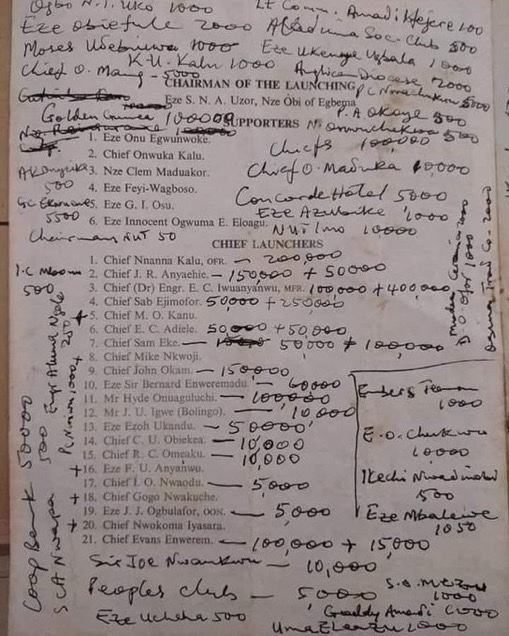 Ogbo N.T. Uko 1000
Lt Comm. Amadi Ikejere 100
Eze Obiefule 2000
Akaduma Soc. Club 500
Moses Usebiuwa 1000
Eze Ukeuge Ugbala 1000
Chief O. Mang - 5000
K.U. Kalu 1000
Anglican Diocese 2000
CHAIRMAN OF THE LAUNCHING
P.C. Nwachukwu 5000
Eze S. N. A. Uzor, Nze Obi of Egbema
Golden Guinea 100000
P.A. Okoye 500
SUPPORTERS
N. Onwuchekwa 500
1. Eze Onu Egwunwoke.
Chiefs 100000
2. Chief Onwuka Kalu.
Chief O. Maduka 10,000
3. Nze Clem Maduakor.
500
4. Eze Feyi-Wagboso.
Concorde Hotel 5000
5. Eze G. I. Osu.
5500
Eze Azubike 1000
6. Eze Innocent Ogwuma E. Eloagu.
NUT Imo 10000
Chairman NUT 50
CHIEF LAUNCHERS
1. Chief Nnanna Kalu, OFR. - 200,000
2. Chief J. R. Anyaehie. - 150000 + 50000
3. Chief (Dr) Engr. E. C. Iwuanyanwu, MFR. 100000 + 400,000
500
4. Chief Sab Ejimofor. 50000 + 250000
+5. Chief M. O. Kanu.
6. Chief E. C. Adiele. 50000 + 50,000
7. Chief Sam Eke. - 50000 + 100000
8. Chief Mike Nkwoji.
9. Chief John Okam. - 150000
10. Eze Sir Bernard Enweremadu. - 60000
11. Mr Hyde Onuaguluchi. - 100000
12. Mr J. U. Igwe (Bolingo). - 10,000
13. Eze Ezoh Ukandu. - 50000
14. Chief C. U. Obiekea. - 10,000
15. Chief R. C. Omeaku. - 10,000
+16. Eze F. U. Anyanwu.
17. Chief I. O. Nwaodu. - 5,000
+ 18. Chief Gogo Nwakuche.
19. Eze J. J. Ogbulafor, OON. - 5,000
+ 20. Chief Nwokoma Iyasara.
21. Chief Evans Enwerem. - 100,000 + 15,000
1000
E.O. Chukwu
10000
Ikechi Nwadinobi
500
Eze Mbaleiwe
1050
Coop Bank 50000
S.C.A Nwapa 500
Sir Joe Nwankwu - 10,000
Peoples Club - 5000
1000
Eze Ucheha 500
Goddy Amadi 1000
Uma Eleazu 1000